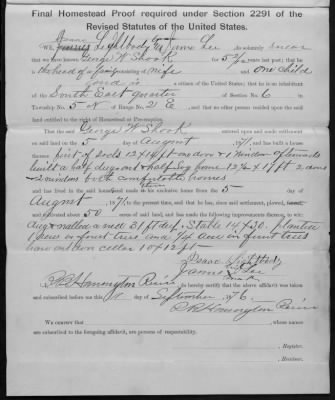 Final Homestead Proof required under Section 2291 of the
Revised Statutes of the United States.
We, Isaac Lightbody and James Lee do solemnly swear
that we have known George W Shook for 5½ years last past; that he
is the head of a family consisting of wife and one child
and is a citizen of the United States; that he is an inhabitant
of the South East quarter of Section No. 6 in
Township No. 5 N of Range No. 2 E, and that no other person resided upon the said
land entitled to the right of Homestead or Pre-emption.
That the said George W Shook entered upon and made settlement
on said land on the 5 day of August, 1871, and has built a house
thereon first of 12 x 14 ft one door & 1 window afterwards
built a half dugout & half log house 12½ x 17 ft 2 doors
2 windows both comfortable houses
and has lived in the said house and made it his exclusive home from the 5 day of
August, 1871, to the present time, and that he has, since said settlement, plowed,
and cultivated about 50 acres of said land, and has made the following improvements thereon, to wit:
dug & walled a well 31 ft deep. Stable 14 x 30. planted
trees or fruit trees and acres in forest trees
cellar 10 x 12 ft
Isaac Lightbody
James Lee
I, do hereby certify that the above affidavit was taken
and subscribed before me this day of September 1876.
We certify that whose names
are subscribed to the foregoing affidavit, are persons of respectability.
, Register.
, Receiver.